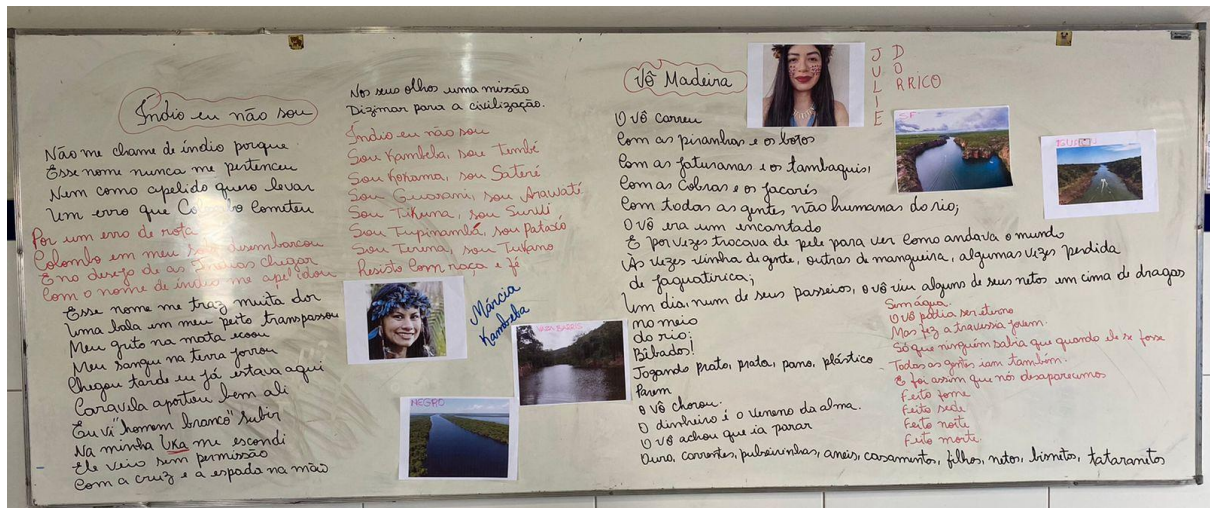 Índio eu não sou
Não me chame de índio porque
Esse nome nunca me pertenceu
Nem como apelido quero levar
Um erro que Colombo cometeu
Por um erro de rota
Colombo em meu solo desembarcou
E no desejo de as Índias chegar
Com o nome de índio me apelidou
Esse nome me traz muita dor
Uma bala em meu peito transpassou
Meu grito na mata ecoou
Meu sangue na terra jorrou
Chegou tarde eu já estava aqui
Caravela aportou bem ali
Eu vi "homem branco" subir
Na minha Uka me escondi
Ele veio sem permissão
Com a cruz e a espada na mão
Nos seus olhos uma missão
Dizimar para a civilização.
Índio eu não sou
Sou Kambeba, sou Tembé
Sou Kokama, sou Sateré
Sou Guarani, sou Arawaté
Sou Tikuna, sou Suruí
Sou Tupinambá, sou Pataxó
Sou Terena, sou Tukano
Resisto com raça e fé
Márcia
Kambeba
NEGRO
Vô Madeira
JULIE
DO
RRICO
O vô correu
Com as piranhas e os botos
Com as jatuaranas e os tambaquis,
Com as cobras e os jacarés
Com todas as gentes não humanas do rio;
O vô era um encantado
E por vezes trocava de pele para ver como andava o mundo
Às vezes vinha de gente, outras de mangueira, algumas vezes perdida
de jaguatirica;
Um dia, num de seus passeios, o vô viu alguns de seus netos em cima de dragas
no meio
do rio;
Bêbados!
Jogando prato, prata, pano, plástico
Parem
O vô chorou.
O dinheiro é o veneno da alma.
O vô achou que ia parar
Ouro, correntes, pulseirinhas, aneis, casamentos, filhos, netos, bisnetos, tataranetos
Sem água.
O vô podia ser eterno
Mas fez a travessia jovem.
Só que ninguém sabia que quando ele se fosse
Todas as gentes iam também.
E foi assim que nós desaparecemos
Feito fome
Feito sede
Feito noite
Feito morte.